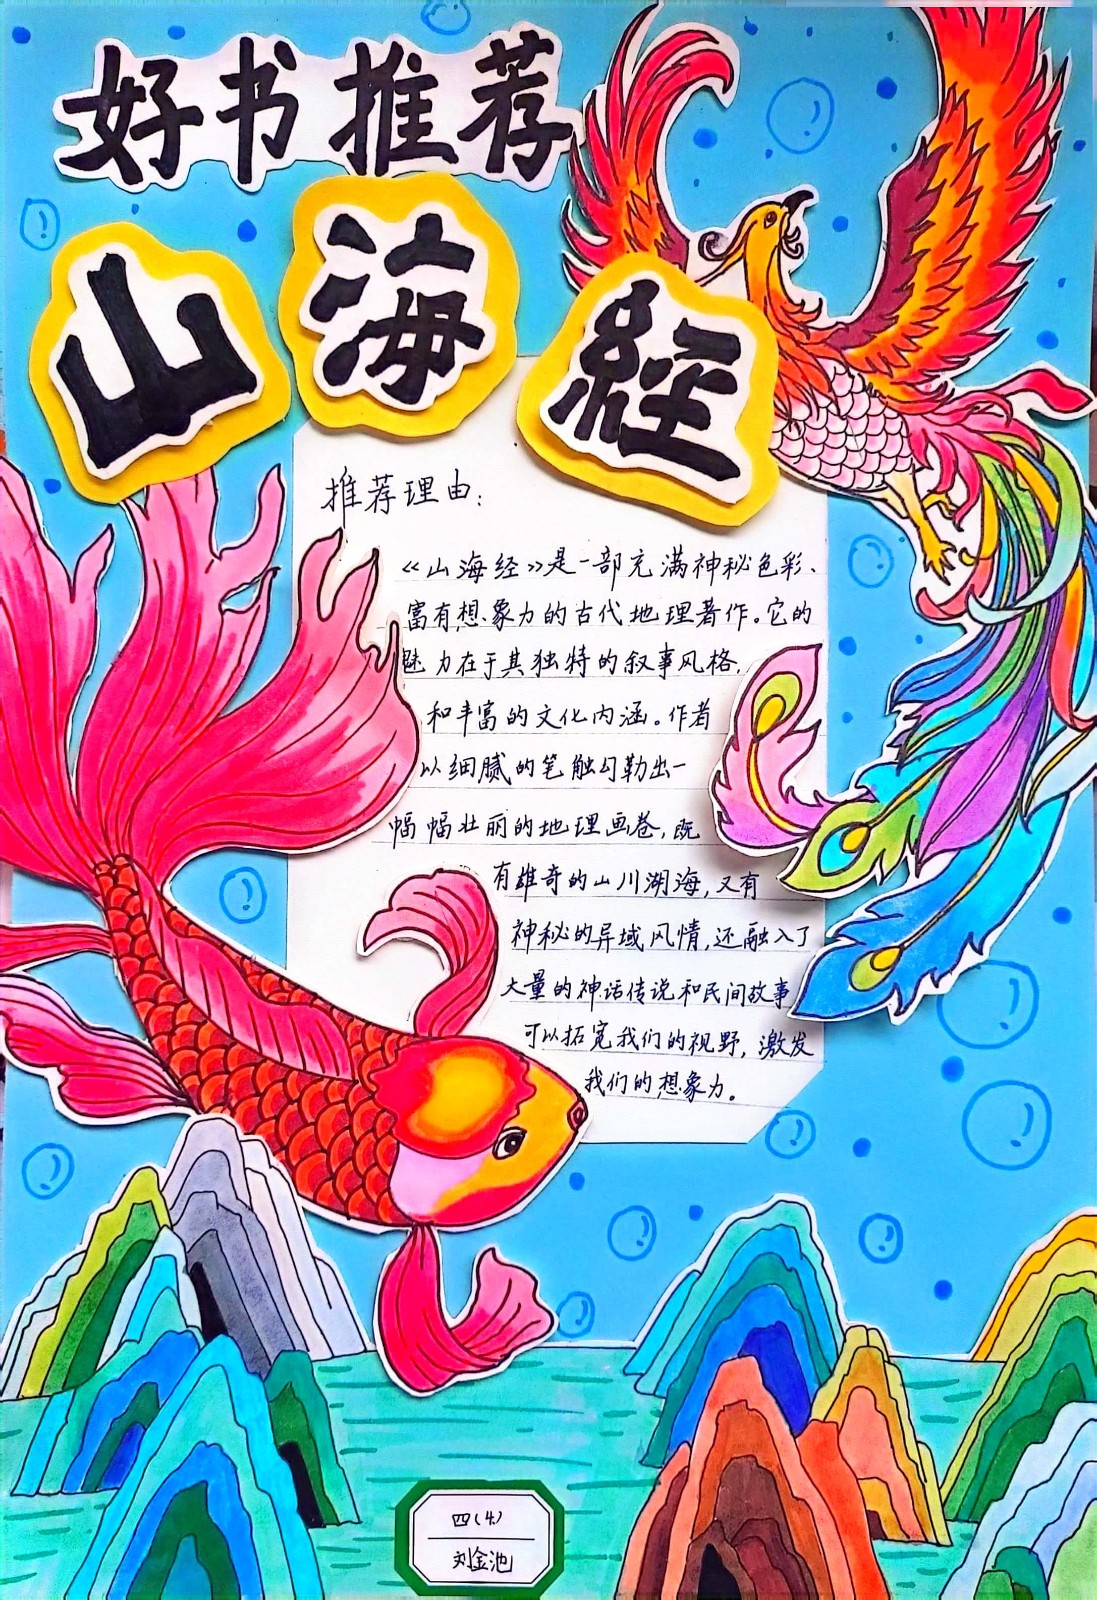 好书推荐
山海經
推荐理由：
《山海经》是一部充满神秘色彩、
富有想象力的古代地理著作。它的
魅力在于其独特的叙事风格，
和丰富的文化内涵。作者
以细腻的笔触勾勒出一
幅幅壮丽的地理画卷，既
有雄奇的山川湖海，又有
神秘的异域风情，还融入了
大量的神话传说和民间故事
可以拓宽我们的视野，激发
我们的想象力。
四（4）
刘金池